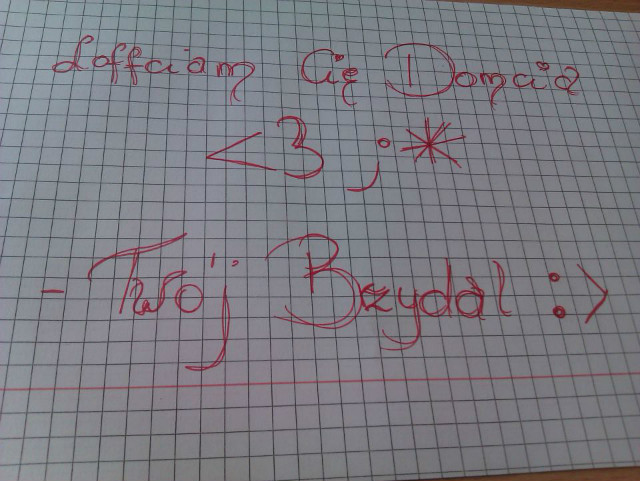 Loffciam Cię Domcia
<3 ;*
- Twój Bzydal :>